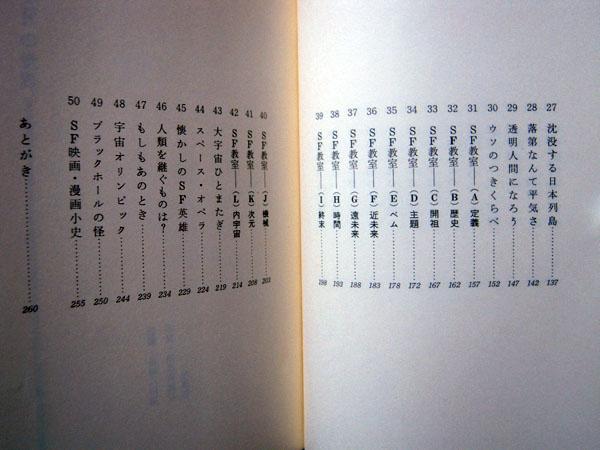 27 沈没する日本列島……137
28 落第なんて平気さ……142
29 透明人間になろう……147
30 ウソのつきくらべ……152
31 SF教室――(A)定義……157
32 SF教室――(B)歴史……162
33 SF教室――(C)開祖……167
34 SF教室――(D)主題……172
35 SF教室――(E)ベム……178
36 SF教室――(F)近未来……183
37 SF教室――(G)遠未来……188
38 SF教室――(H)時間……193
39 SF教室――(I)終末……198
40 SF教室――(J)機械……203
41 SF教室――(K)次元……208
42 SF教室――(L)内宇宙……214
43 大宇宙ひとまたぎ……219
44 スペース・オペラ……224
45 懐かしのSF英雄……229
46 人類を継ぐものは?……234
47 もしもあのとき……239
48 宇宙オリンピック……244
49 ブラックホールの怪……250
50 SF映画・漫画小史……255
あとがき……260